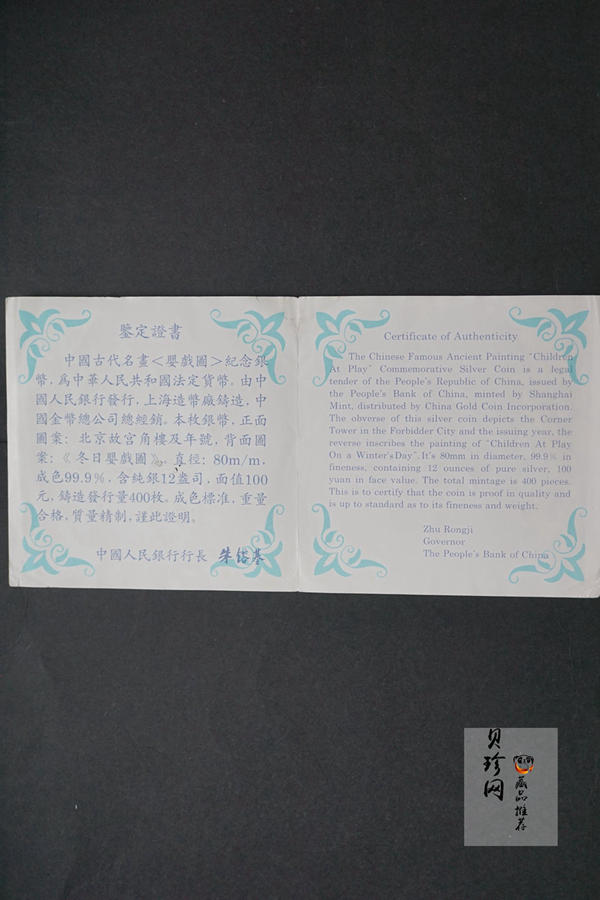 鑒定證書
中國古代名畫＜嬰戲圖＞紀念銀
幣，爲中華人民共和國法定貨幣。由中
國人民銀行發行，上海造幣廠鑄造，中
國金幣總公司總經銷。本枚銀幣，正面
圖案：北京故宮角樓及年號，背面圖
案：《冬日嬰戲圖》。直徑：80m/m，
成色99.9%，含純銀12盎司，面值100
元，鑄造發行量400枚。成色標准，重量
合格，質量精制，謹此證明。
中國人民銀行行長 朱镕基
Certificate of Authenticity
The Chinese Famous Ancient Painting "Children
At Play" Commemorative Silver Coin is a legal
tender of the People's Republic of China, issued by
the People's Bank of China, minted by Shanghai
Mint, distributed by China Gold Coin Incorporation.
The obverse of this silver coin depicts the Corner
Tower in the Forbidder City and the issuing year, the
reverse inscribes the painting of "Children At Play
On a Winter'sDay". It's 80mm in diameter, 99.9% in
fineness, containing 12 ounces of pure silver, 100
yuan in face value. The total mintage is 400 pieces.
This is to certify that the coin is proof in quality and
is up to standard as to its fineness and weight.
Zhu Rongji
Governor
The People's Bank of China
贝珍网
藏品推荐